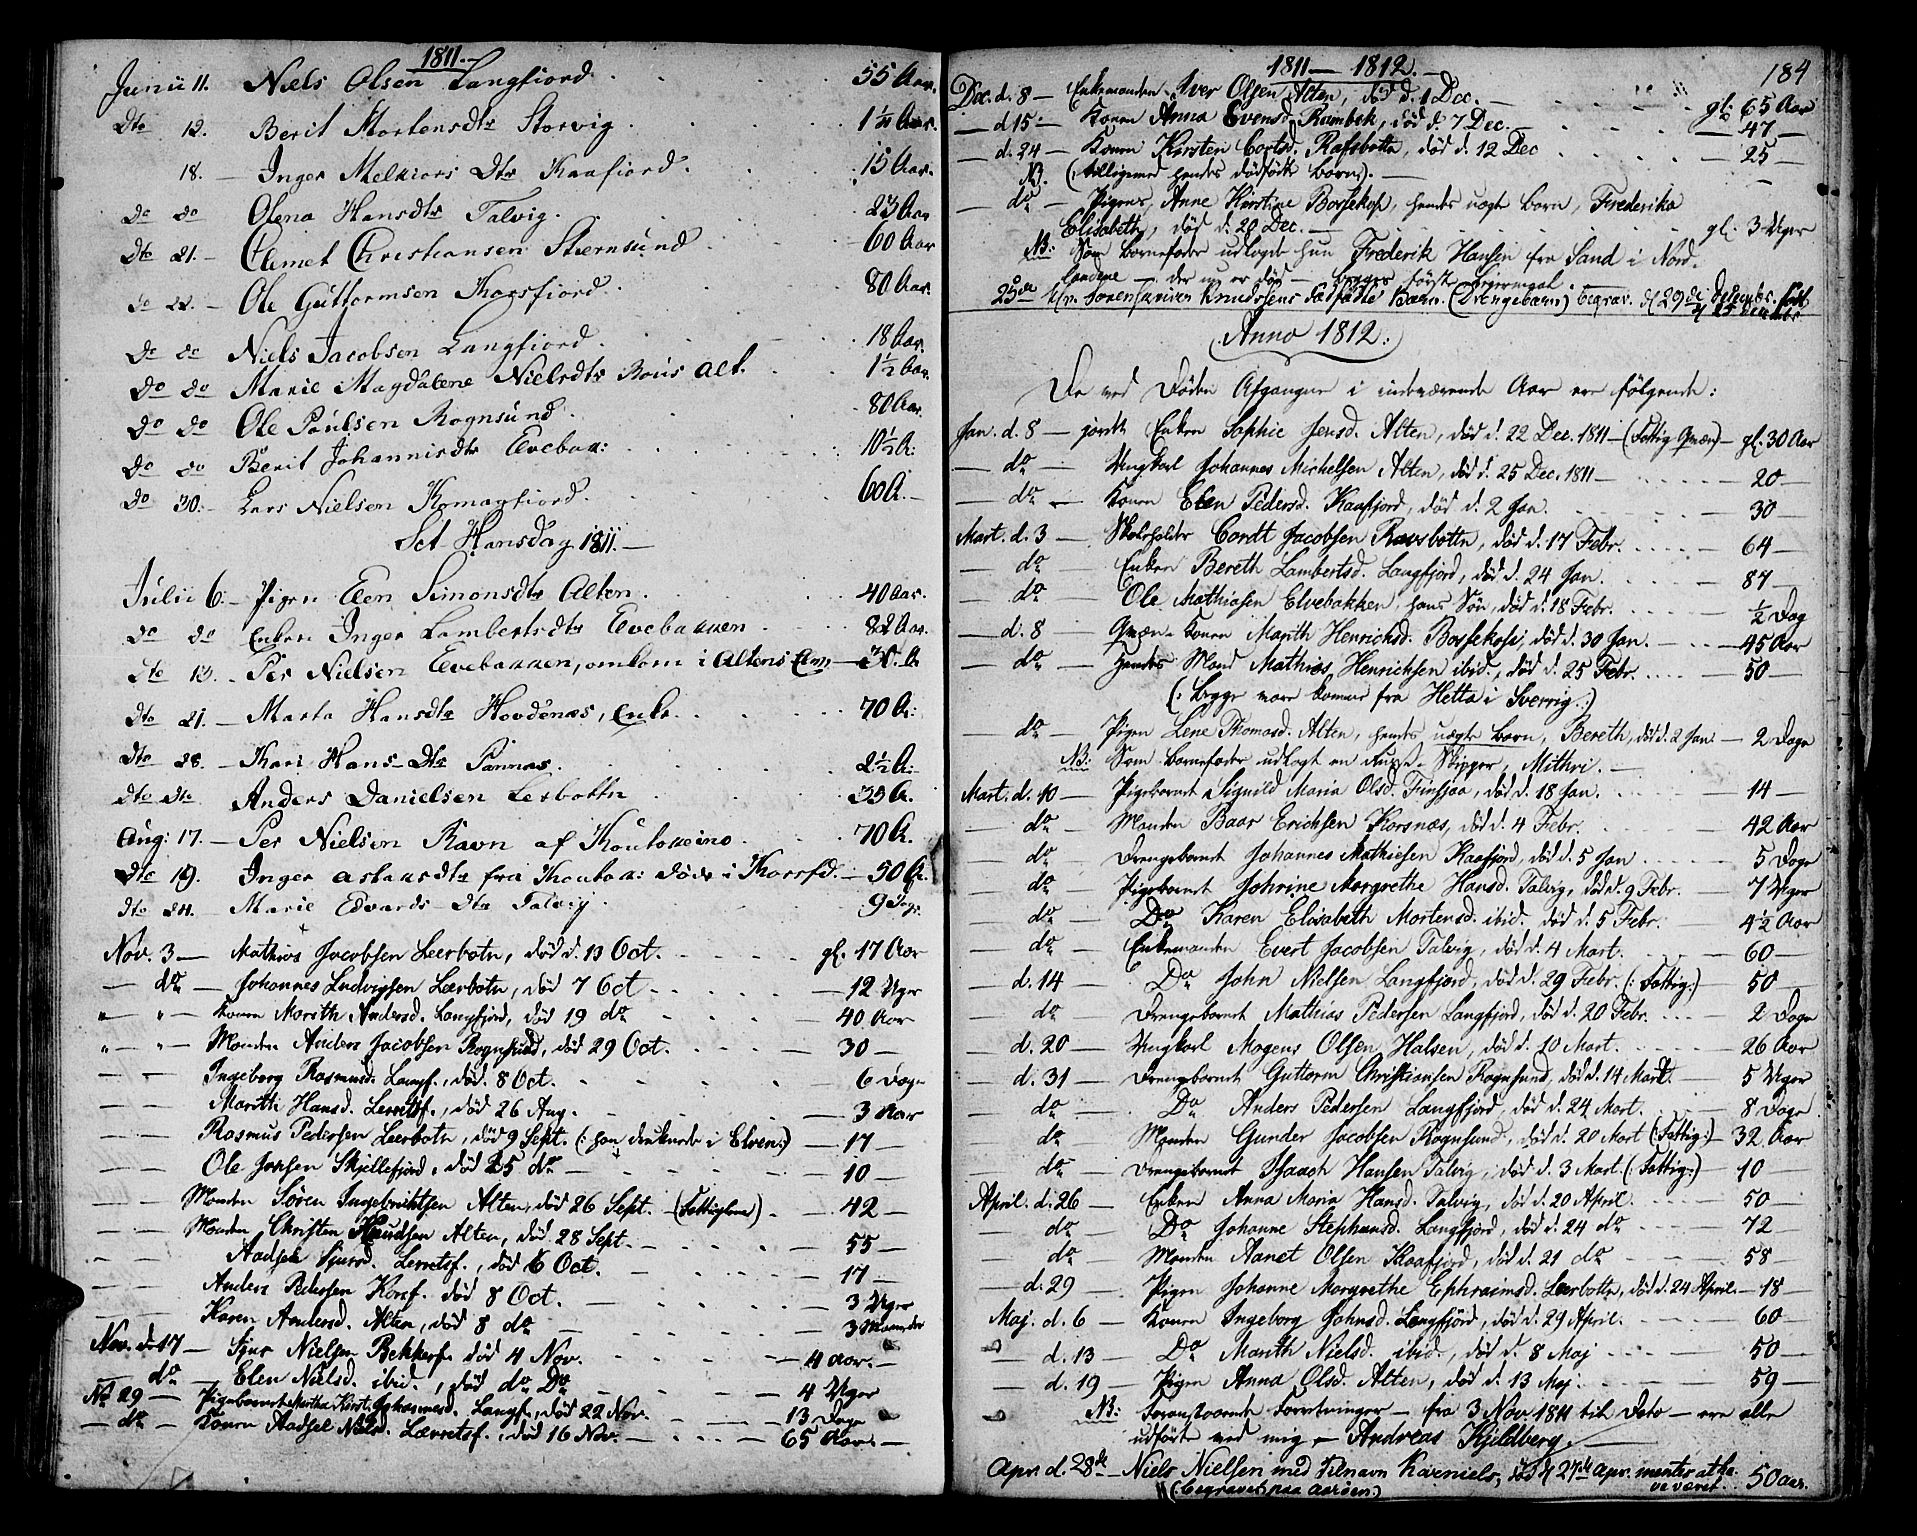 1811.
Junii 11. Niels Olsen Langfiord 55 Aar.
Dto 12. Berit Mortensdtr Storvig 1½ Aar.
18. Inger Melkiors Dtr Kaafiord 15 Aar.
Do Do Olena Hansdtr Talvig 23 Aar
Dto 21. Clemet Christiansen Stiernsund 60 Aar
Do 22. Ole Guttormsen Korsfiord 80 Aar.
Do Do Niels Jacobsen Langfiord 18 Aar.
Do Do Marie Magdalene Nielsdtr Alt. 1½ Aar.
Do Do Ole Poulsen Rognsund 80 Aar.
Do Do Berit Johannisdtr Elvebak: 10½ A:
Do 30. Lars Nielsen Komagfiord 60 A.
Sct Hansdag 1811.
Julii 6. Pigen Elen Simonsdtr Alten 40 Aar.
Do Do Enken Inger Lambertsdtr Elvebakken 82 Aar.
Dto 13. Per Nielsen Elvebakken, omkom i Altens Elv 30 A.
Dto 21. Marta Hansdtr Hovdenæs, Enke 70 A:
Dto 28. Kari Hans-Dtr 2½ A:
Dto Dto Anders Danielsen Lerbottn 35 A.
Aug: 17. Per Nielsen Ravn af Koutokeino 70 A.
Dto 19. Inger Aslaksdtr fra Koutok: døde i Korsfd. 50 A.
Dto 24. Marie Edvards Dtr Talvig 9 Dage
Nov. 3 Mathias Jacobsen Leerbotn, død d. 13 Oct. gl. 17 Aar
do Johannes Ludvigsen Lærbotn, død 7 Oct 12 Uger
" " Konen Marith Andersd. Langfjord, død 19 do 40 Aar
" " Manden Anders Jacobsen Rognsund, død 29 Oct. 30
Ingeborg Rasmusd. Langf., død 8 Oct. 6 Dage
Marith Hansd. Lerretsf., død 26 Aug. 3 Aar
Rasmus Pedersen Leerbotn, død 9 Sept. (: han druknede i Elven:) 17
Ole Skillefjord, død 25 do 10
Manden Søren Ingebrichtsen Alten, død 26 Sept. (Fattiglem) 42
Manden Christen Knudsen Alten, død 28 Sept. 55
Aadsel Sjursd. Lerretsf., død 6 Oct. 17
Anders Pedersen Korsf. død 8 Oct. 3 Uger
Karen Andersd. Alten, død 8 do 3 Maaneder
Nov. d. 17 Sjur Nielsen Bekkerf. død 4 Nov. 4 Aar.
do Elen Nielsd. ibid., død do Do 4 Uger
No 29 Pigebarnet Martha Kirst. Johannesd. Langf., død 22 Nov. 13 Dage
do Konen Aadsel Nielsd. Lærretsf., død 16 Nov. 65 Aar.
1811 — 1812.
184
Dec. d. 8 Enkemanden Iver Olsen Alten, død d. 1 Dec. gl. 65 Aar
d 15 Konen Anna Evensd. Rambek, død d. 7 Dec. 47
d. 24 Konen Kirsten Cortsd. Rafsbotn, død d. 12 Dec 25
NB. (tilligemed hendes dødfødte Barn).
do Pigens Anne Kirstine Bossekop, hendes uægte Barn, Frederika
Elisabeth, død d. 20 Dec. gl. 3 Uger
NB: Som Barnefader udlagde hun Frederik Hansen fra Sand i Nord-
landene — der nu er død — begges første Leiermaal.
25de Hr. Sorenskriver Knudssens dødfødte Barn. (Drengebarn) begrav. d 29de Decembr. født d 25 Decembr
Anno 1812.
De ved Døden Afgangne i indeværende Aar ere følgende:
Jan. d. 8 jordet Enken Sophie Jensd. Alten, død d. 22 Dec. 1811 (Fattig Qvæn) gl. 30 Aar
do Ungkarl Johannes Michelsen Alten, død d. 25 Dec. 1811 20
do Konen Elen Pedersd. Kaafjord, død d. 2 Jan. 30
Mart. d. 3 Skoleholder Cordt Jacobsen Ravsbotn, død d. 17 Febr. 64
do Enken Bereth Lambertsd. Langfjord, død d. 24 Jan. 87
do Ole Mathisen Elvebakken, hans Søn, død d. 18 Febr. ½ Dag
d. 8 Qvæn-Konen Marith Henrichsd. Bossekop, død d. 30 Jan. 45 Aar
do Hendes Mand Mathias Henrichsen ibid., død d. 25 Febr. 50
(: begge vare komne fra Hetta i Sverrig.:)
do Pigen Lene Thomasd. Alten, hendes uægte Barn, Bereth, død d. 2 Jan. 2 Dage
NB: Som Barnefader udlagt en Russ. Skipper, Mithri.
Mart. d. 10 Pigebarnet Signild Maria Olsd. død d. 18 Jan. 14
do Manden Baar Erichsen Korsnæs, død d. 4 Febr. 42 Aar
do Drengebarnet Johannes Mathiesen Kaafjord, død d. 5 Jan 5 Dage
do Pigebarnet Johrine Margrethe Hansd. Talvig, død d. 9 Febr. 7 Uger
do Do Karen Elisabeth Mortensd. ibid. død d. 5 Febr. 4½ Aar
do Enkemanden Evert Jacobsen Talvig, død d. 4 Mart. 60
d. 14 Do John Nielsen Langfjord, død d. 29 Febr. (: Fattig:) 50
do Drengebarnet Mathias Pedersen Langfjord, død d. 20 Febr. 2 Dage
d. 20 Ungkarl Mogens Olsen Halsen, død d. 10 Mart. 26 Aar
d. 31 Drengebarnet Guttorm Christiansen Rognsund, død d. 14 Mart. 5 Uger
do Do Anders Pedersen Langfjord, død d. 24 Mart. 8 Dage
do Manden Gunder Jacobsen Rognsund, død d. 20 Mart (: Fattig:) 32 Aar
do Drengebarnet Isaach Hansen Talvig, død d. 3 Mart. (: Fattig:) 10
April. d. 26 Enken Anna Maria Hansd. Talvig, død d. 20 April. 50
do Do Johanne Stephansd. Langfjord, død d. 24 do 72
do Manden Aanet Olsen Kaafjord, død d. 21 do 58
d. 29 Pigen Johanne Margrethe Ephraimsd. Leerbotn, død d. 24 April. 18
Maj. d. 6 Konen Ingeborg Johnsd. Langfjord, død d. 29 April. 60
d. 13 Do Marith Nielsd. ibid., død d. 8 Maj 50
d. 19 Pigen Anna Olsd. Alten, død d. 13 Maj. 59
NB: Foranstaaende Forretninger — fra 3 Nov. 1811 til Dato — ere alle
udførte ved mig — Andreas Kjeldberg.
Apr. d. 28de Niels Nielsen med Tilnavn Kaveniels, død d 27de Apr. mentes at ha-
ve været 50 aar.
(: begravet paa Aarøen:)